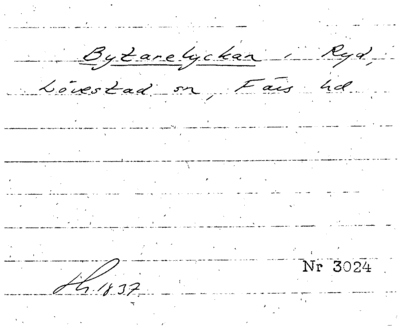 Bytarelyckan i Ryd,
Lövestad sn, Färs hd
Nr 3024
Lh. 1837